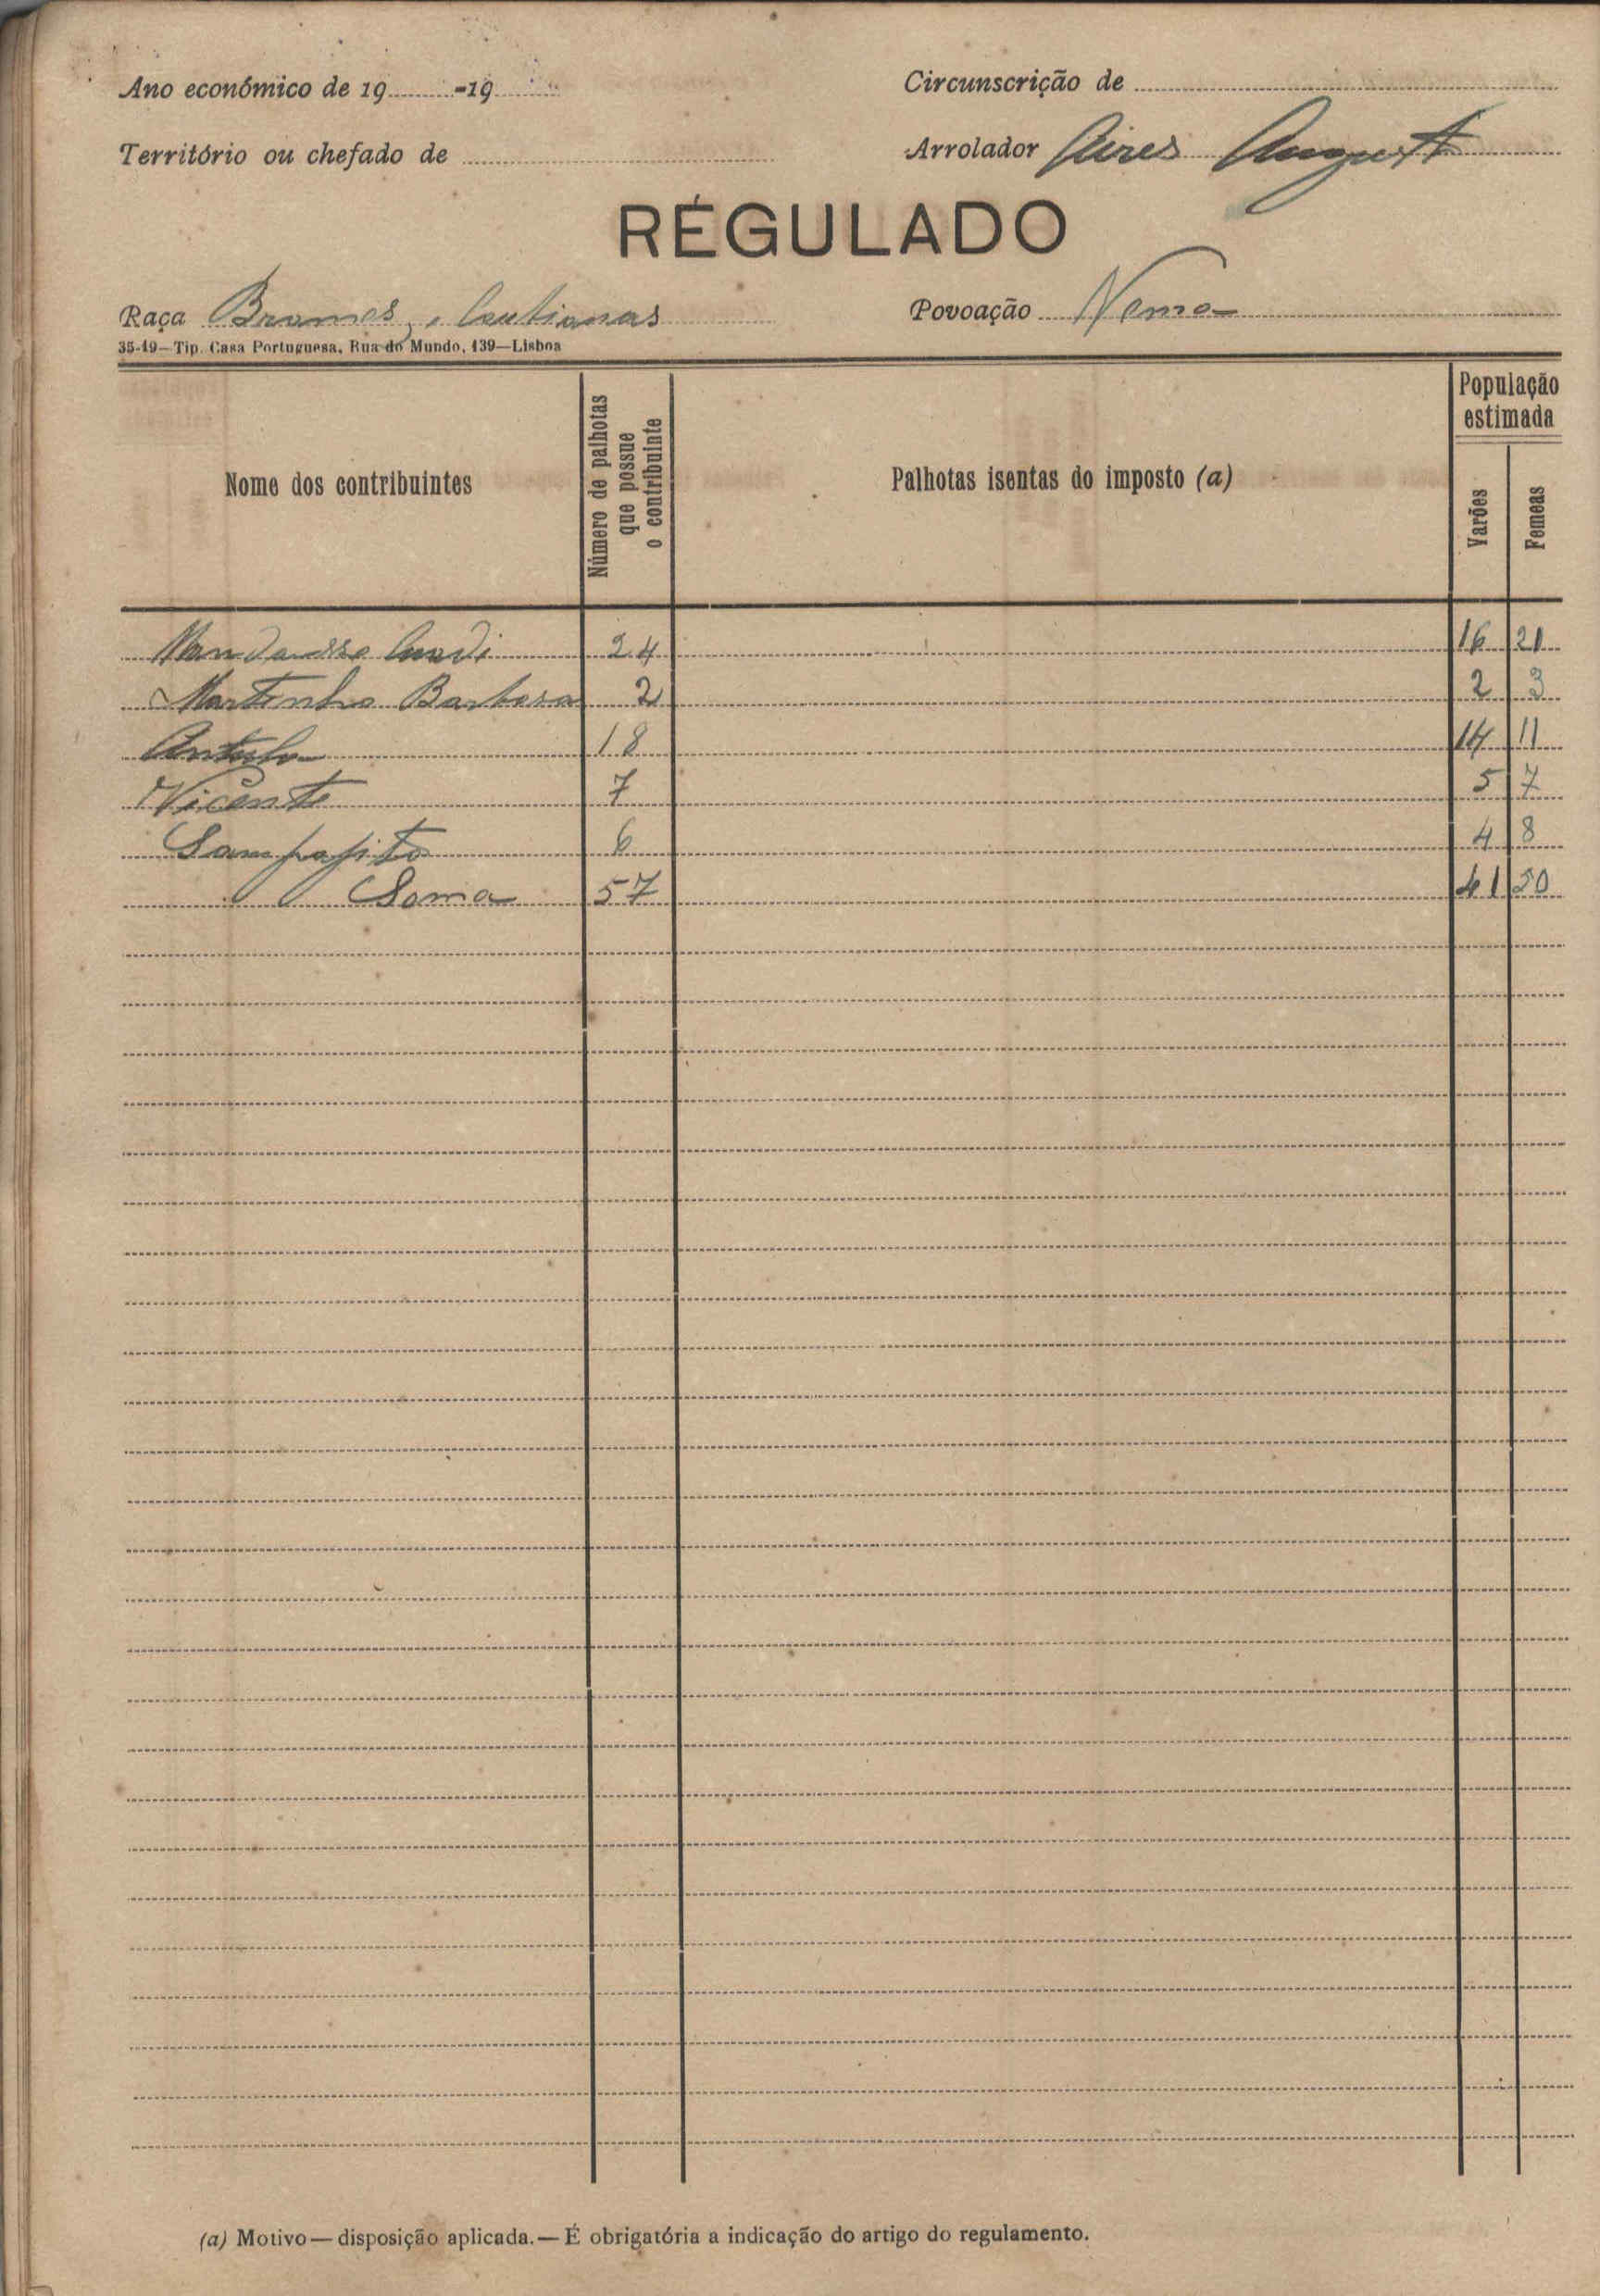 Ano económico de 19.........-19.........
Circunscrição de
Território ou chefado de
Arrolador Aires August
RÉGULADO
Raça Brames, e
Povoação Nema
35-19—Tip. Casa Portuguesa, Rua do Mundo, 139—Lisboa
Nome dos contribuintes
Número de palhotas que possue o contribuinte
Palhotas isentas do imposto (a)
População estimada
Varões
Femeas
24 16 21
Martinho Barbosa 2 2 3
18 14 11
Vicente 7 5 7
6 4 8
Soma 57 41 50
(a) Motivo — disposição aplicada. — É obrigatória a indicação do artigo do regulamento.